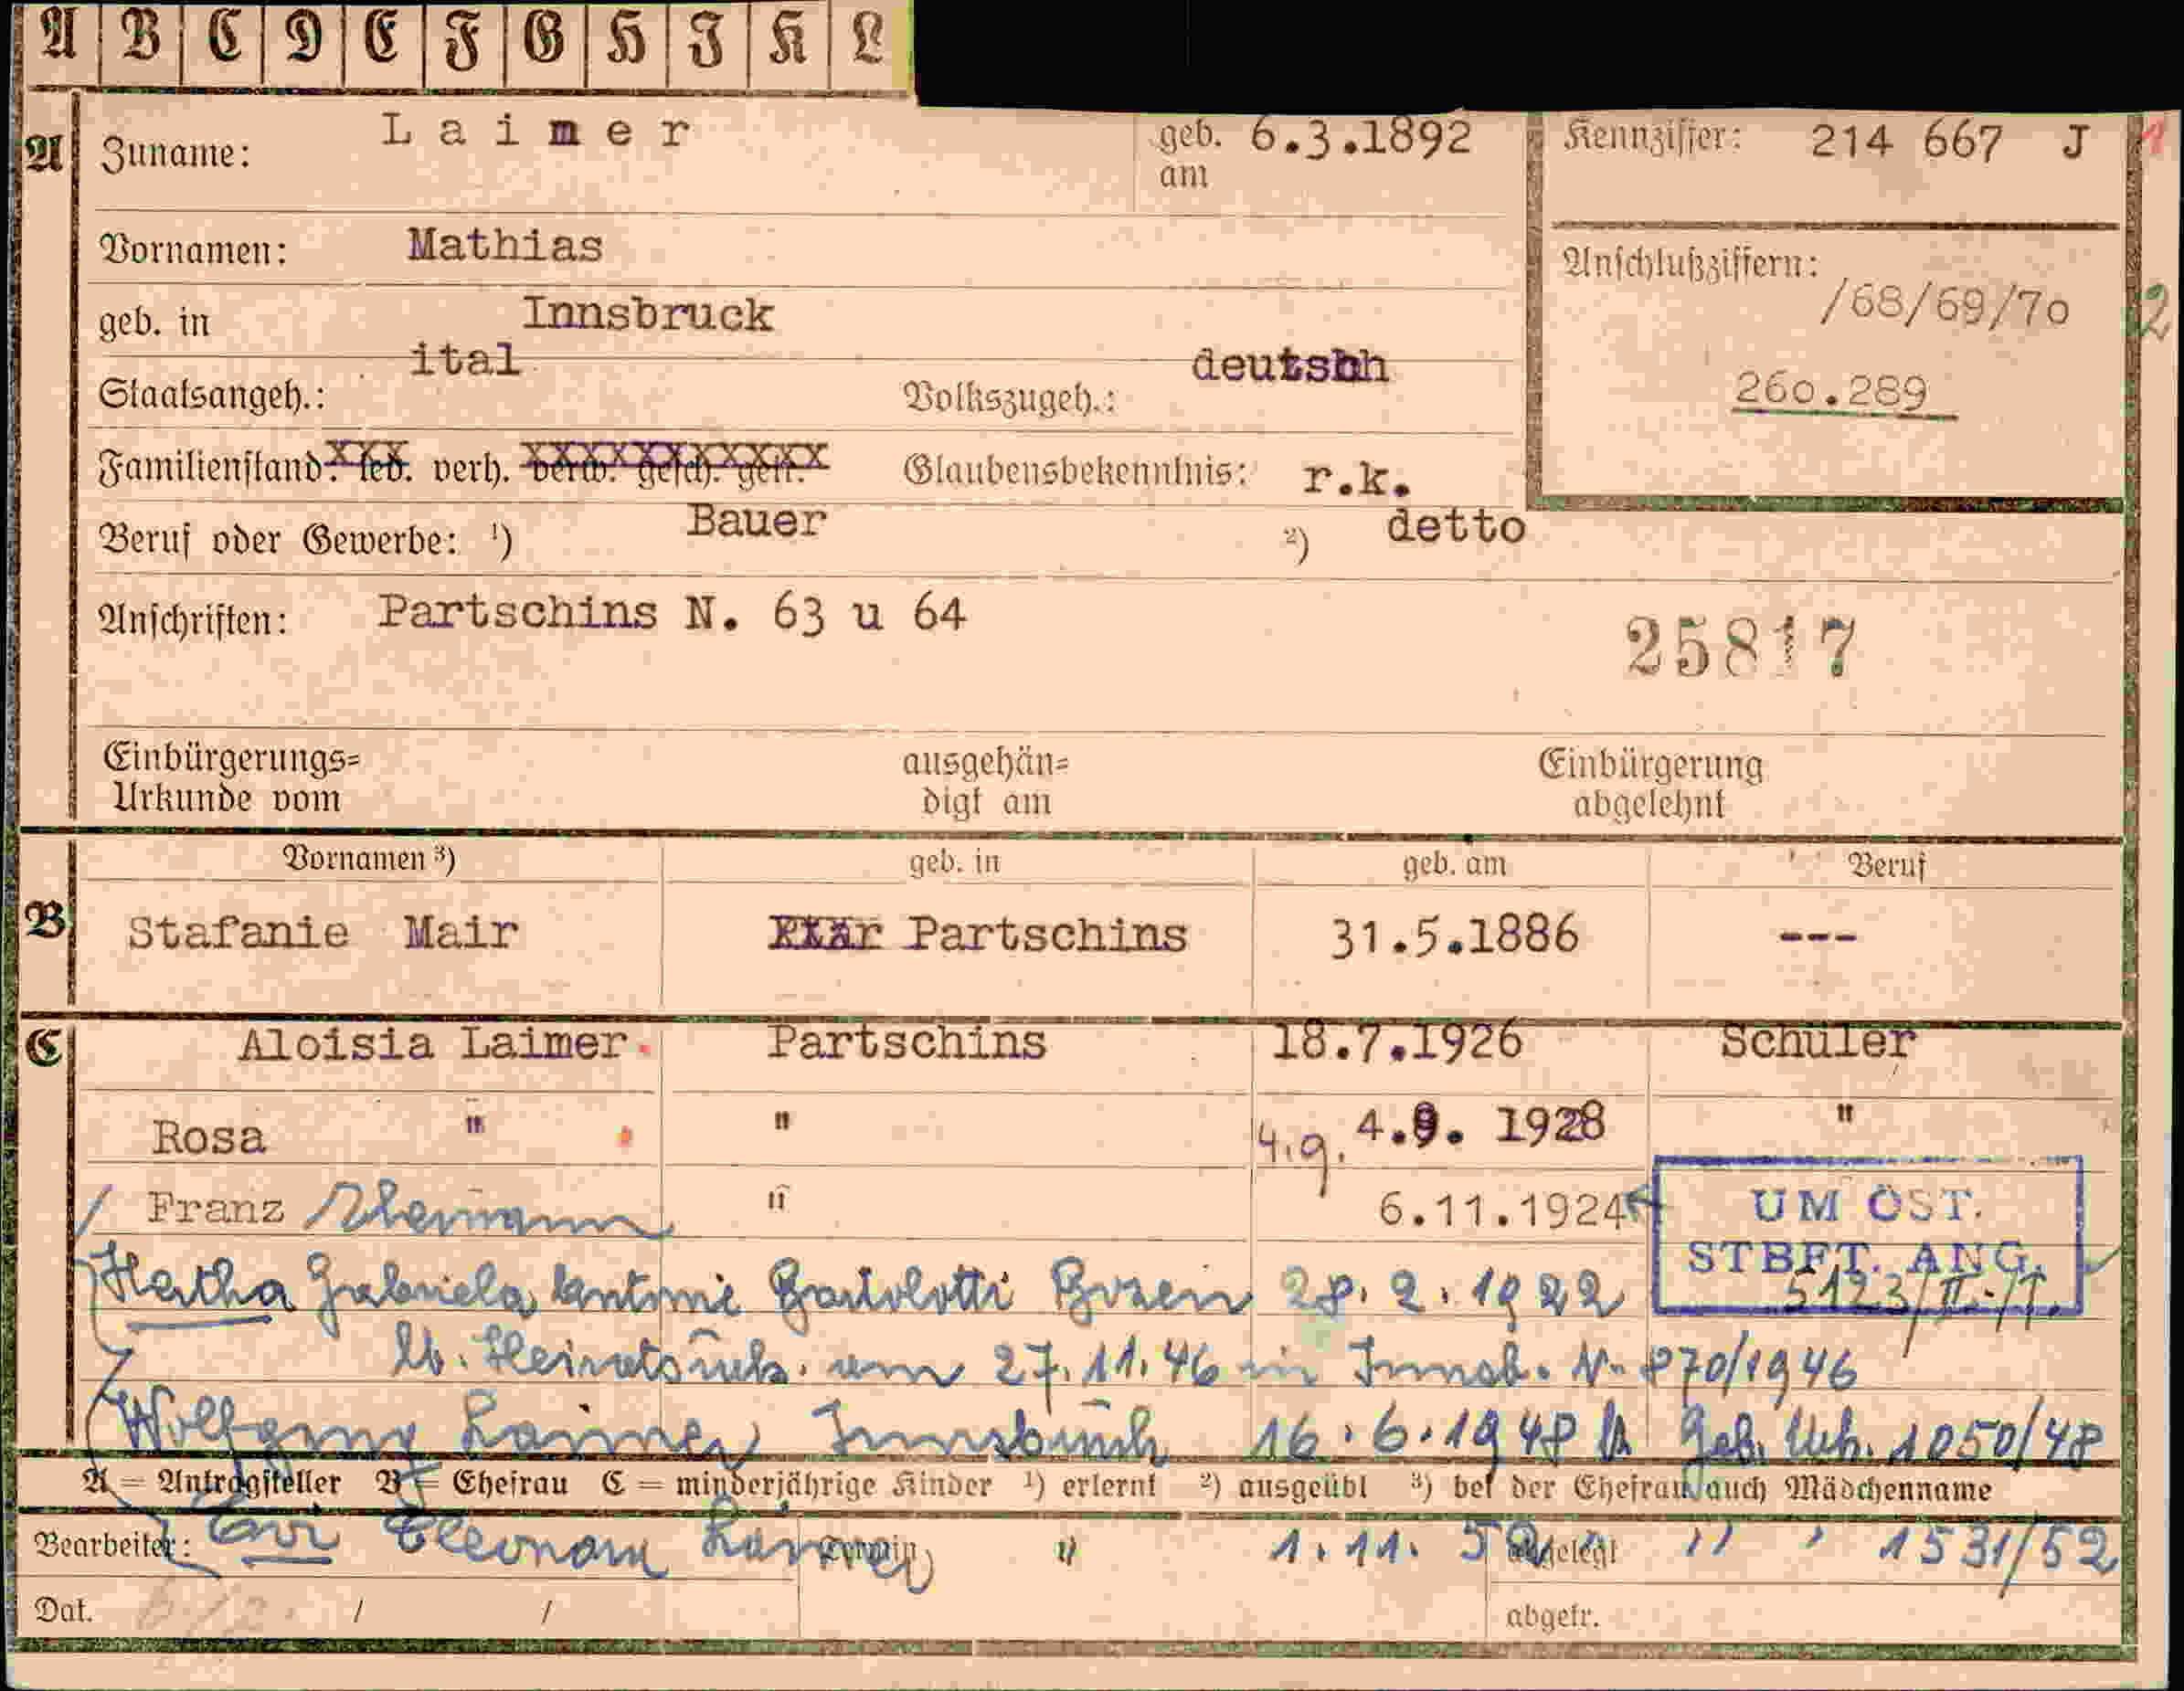 A B C D E F G H I K L
A Zuname: Laimer geb. am 6.3.1892 Kennziffer: 214 667 J 1
Vornamen: Mathias Anschlußziffern: /68/69/70 2
geb. in Innsbruck
Staatsangeh.: ital Volkszugeh.: deutsch 260.289
Familienstand: led. verh. verw. gesch. getr. Glaubensbekenntnis: r.k.
Beruf oder Gewerbe: 1) Bauer 2) detto
Anschriften: Partschins N. 63 u 64 25817
Einbürgerungs= ausgehän= Einbürgerung
Urkunde vom digt am abgelehnt
Vornamen 3) geb. in geb. am Beruf
B Stafanie Mair Partschins 31.5.1886 ---
C Aloisia Laimer Partschins 18.7.1926 Schüler
Rosa " " 4.9. 4.9. 1928 "
/ Franz Ehemann " 6.11.1924 UM ÖST.
STBFT. ANG.
5123/II-/T.
Hertha Gabriela Antonie Bartolotti Bozen 28.2.1922
lt. Heiratsurk. vom 27.11.46 in Innsb. N. 870/1946
Wolfgang Laimer Innsbruck 16.6.1948 lt Geb. Urk. 1050/48
A = Antragsteller B = Ehefrau C = minderjährige Kinder 1) erlernt 2) ausgeübt 3) bei der Ehefrau auch Mädchenname
Bearbeiter: Evi Eleonora Laimer Termin " 1.11.52 abgelegt " " 1531/52
Dat. / / abgetr.